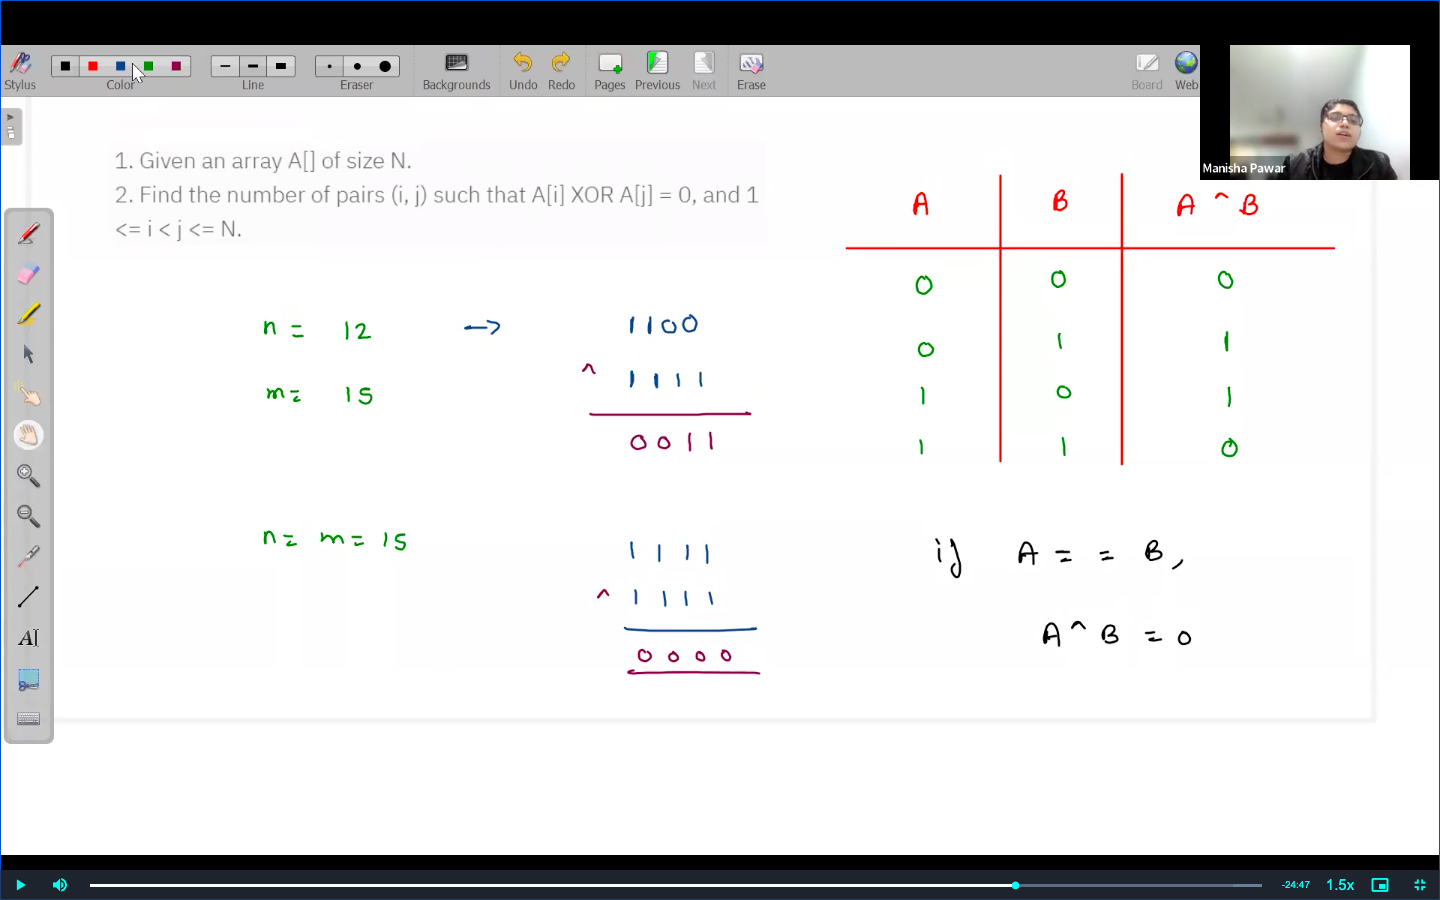 Stylus
Color
Line
Eraser
Backgrounds
Undo
Redo
Pages
Previous
Next
Erase
Board
Web
Manisha Pawar
1. Given an array A[] of size N.
2. Find the number of pairs (i, j) such that A[i] XOR A[j] = 0, and 1
<= i < j <= N.
A B A ^ B
0 0 0
0 1 1
1 0 1
1 1 0
n = 12 -> 1100
m = 15 ^ 1111
0011
n = m = 15 1111
^ 1111
0000
if A == B,
A ^ B = 0
AI
-24:47
1.5x